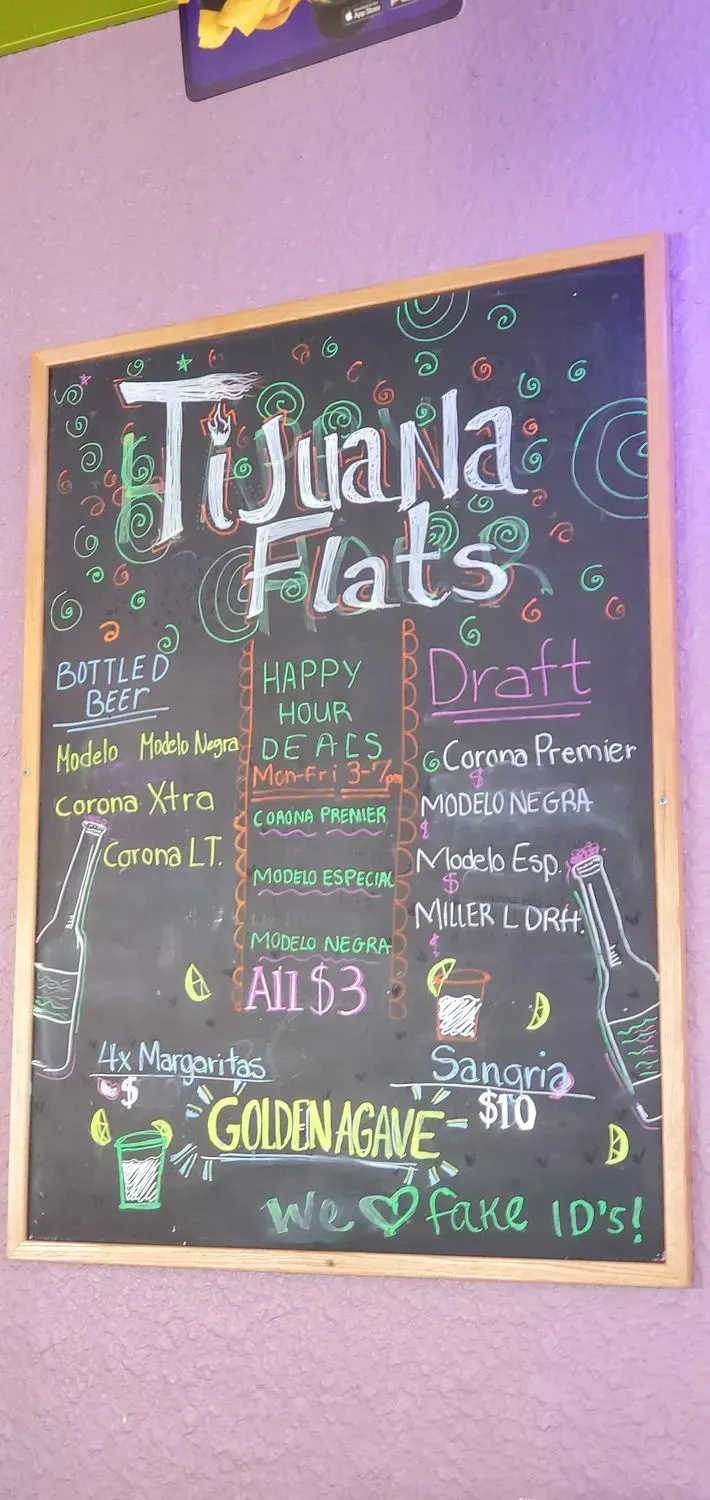 App Store
Tijuana
Flats
BOTTLED
BEER
Modelo Modelo Negra
Corona Xtra
Corona LT.
HAPPY
HOUR
DEALS
Mon-Fri 3-7pm
CORONA PREMIER
MODELO ESPECIAL
MODELO NEGRA
All $3
Draft
Corona Premier
$
MODELO NEGRA
$
Modelo Esp.
$
MILLER L DRft.
$
4x Margaritas
$
Sangria
$10
GOLDEN AGAVE
We fake ID's!